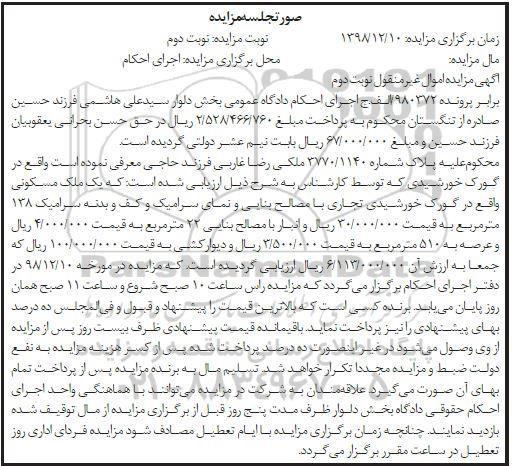 صورتجلسه‌مزایده
زمان برگزاری مزایده: ۱۳۹۸/۱۲/۱۰ نوبت مزایده: نوبت دوم
مال مزایده: محل برگزاری مزایده: اجرای احکام
آگهی مزایده اموال غیر منقول نوبت دوم
برابر پرونده ۹۸۰۳۷۲/الف ج اجرای احکام دادگاه عمومی بخش دلوار سیدعلی هاشمی فرزند حسین
صادره از تنگستان محکوم به پرداخت مبلغ ۲/۵۲۸/۴۶۶/۷۶۰ ریال در حق حسن بحرانی یعقوبیان
فرزند حسین و مبلغ ۶۷/۰۰۰/۰۰۰ ریال بابت نیم عشر دولتی گردیده است.
محکوم‌علیه پلاک شماره ۳۷۷۰/۱۱۴۰ ملکی رضا غاربی فرزند حاجی معرفی نموده است واقع در
گورک خورشیدی که توسط کارشناس به شرح ذیل ارزیابی شده است: که یک ملک مسکونی
واقع در گورک خورشیدی تجاری با مصالح بنایی و نمای سرامیک و کف و بدنه سرامیک ۱۳۸
مترمربع به قیمت ۳۰/۰۰۰/۰۰۰ ریال و انبار با مصالح بنایی ۲۲ مترمربع به قیمت ۴/۰۰۰/۰۰۰ ریال
و عرصه به ۵۱۰ مترمربع به قیمت ۳/۵۰۰/۰۰۰ ریال و دیوارکشی به قیمت ۱۰۰/۰۰۰/۰۰۰ ریال که
جمعا به ارزش آن ۶/۱۱۳/۰۰۰/۰۰۰ ریال ارزیابی گردیده است. که مزایده در مورخه ۹۸/۱۲/۱۰ در
دفتر اجرای احکام برگزار می‌گردد که مزایده راس ساعت ۱۰ صبح شروع و ساعت ۱۱ صبح همان
روز پایان می‌یابد. برنده کسی است که بالاترین قیمت را پیشنهاد و قبول و فی‌المجلس ده درصد
بهای پیشنهادی را نیز پرداخت نماید. باقیمانده قیمت پیشنهادی ظرف بیست روز پس از مزایده
از وی وصول می‌شود در غیر اینصورت ده درصد پرداخت شده پس از کسر هزینه مزایده به نفع
دولت ضبط و مزایده مجددا تکرار خواهد شد. تسلیم مال به برنده مزایده پس از پرداخت تمام
بهای آن صورت می‌گیرد. علاقه‌مندان به شرکت در مزایده می‌توانند با هماهنگی واحد اجرای
احکام حقوقی دادگاه بخش دلوار ظرف مدت پنج روز قبل از برگزاری مزایده از مال توقیف شده
بازدید نمایند. چنانچه زمان برگزاری مزایده با ایام تعطیل مصادف شود مزایده فردای اداری روز
تعطیل در ساعت مقرر برگزار می‌گردد.